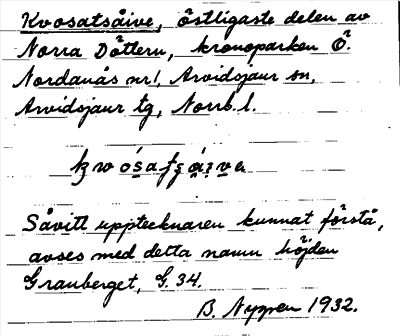 Kvosatsåive, östligaste delen av
Norra Döttern, kronoparken Ö.
Nordanås nr 1, Arvidsjaur sn,
Arvidsjaur tg, Norrb. l.
Såvitt upptecknaren kunnat förstå,
avses med detta namn höjden
Granberget, G. 34.
B. Nyppen 1932.